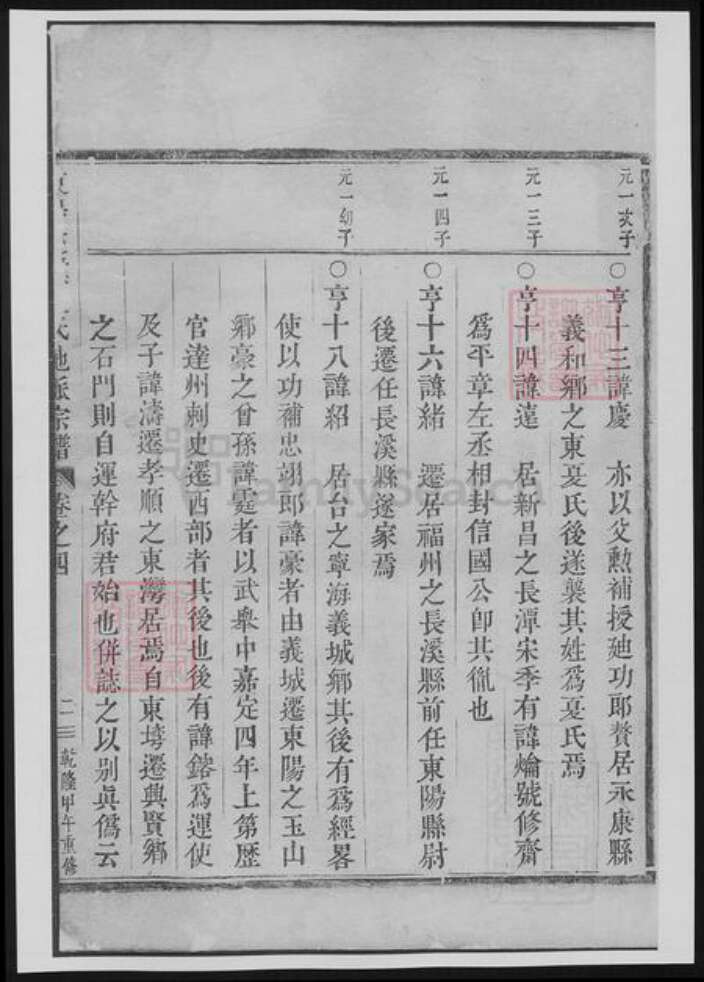 元一次子
○亨十三諱慶　亦以父勲補授廸功郎贅居永康縣
義和鄉之東夏氏後遂襲其姓爲夏氏焉
元一三子
○亨十四諱遠　居新昌之長潭宋季有諱爚號修齋
爲平章左丞相封信國公卽其胤也
元一四子
○亨十六諱緒　遷居福州之長溪縣前任東陽縣尉
後遷任長溪縣遂家焉
元一幼子
○亨十八諱紹　居台之寧海義城鄉其後有爲經畧
使以功補忠翊郎諱豪者由義城遷東陽之玉山
鄉豪之曾孫諱霆者以武舉中嘉定四年上第歷
官達州刺史遷西部者其後也後有諱鎔爲運使
及子諱濤遷孝順之東灣居焉自東塆遷興賢鄉
之石門則自運幹府君始也併誌之以别眞僞云
氏地派宗譜
卷之四
二
乾隆甲午重修
FamilySearch